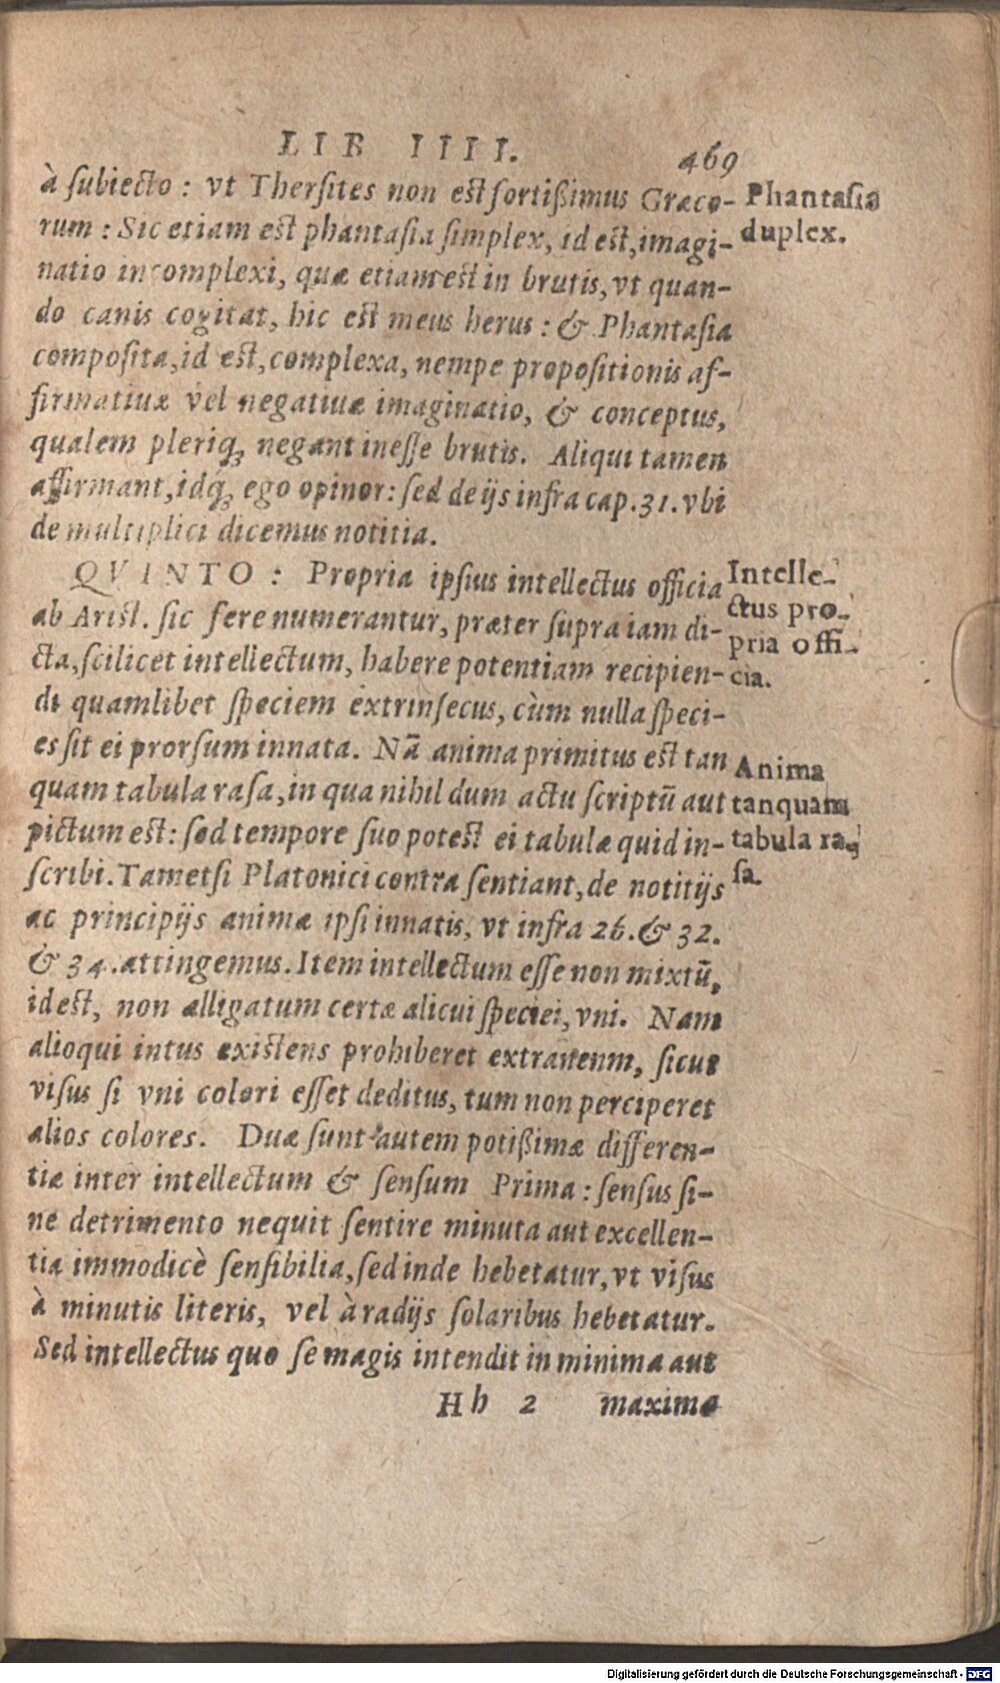 LIB IIII. 469
à subiecto : vt Thersites non est fortißimus Græco-
rum : Sic etiam est phantasia simplex, id est, imagi-
natio incomplexi, quæ etiam est in brutis, vt quan-
do canis cogitat, hic est meus herus : & Phantasia
composita, id est, complexa, nempe propositionis af-
firmatiuæ vel negatiuæ imaginatio, & conceptus,
qualem pleriq; negant inesse brutis. Aliqui tamen
affirmant, idq; ego opinor : sed de ijs infra cap. 31. vbi
de multiplici dicemus notitia.
Phantasia
duplex.
QVINTO : Propria ipsius intellectus officia
ab Arist. sic fere numerantur, præter supra iam di-
cta, scilicet intellectum, habere potentiam recipien-
di quamlibet speciem extrinsecus, cùm nulla speci-
es sit ei prorsum innata. Nā anima primitus est tan
quam tabula rasa, in qua nihil dum actu scriptū aut
pictum est : sed tempore suo potest ei tabulæ quid in-
scribi. Tametsi Platonici contra sentiant, de notitijs
ac principijs animæ ipsi innatis, vt infra 26. & 32.
& 34. attingemus. Item intellectum esse non mixtū,
id est, non alligatum certæ alicui speciei, vni. Nam
alioqui intus existens prohiberet extraneum, sicut
visus si vni colori esset deditus, tum non perciperet
alios colores. Duæ sunt autem potißimæ differen-
tiæ inter intellectum & sensum Prima : sensus si-
ne detrimento nequit sentire minuta aut excellen-
tia immodicè sensibilia, sed inde hebetatur, vt visus
à minutis literis, vel à radijs solaribus hebetatur.
Sed intellectus quo se magis intendit in minima aut
Intelle-
ctus pro-
pria offi-
cia.
Anima
tanquam
tabula ra-
sa.
Hh 2 maxima
Digitalisierung gefördert durch die Deutsche Forschungsgemeinschaft - DFG